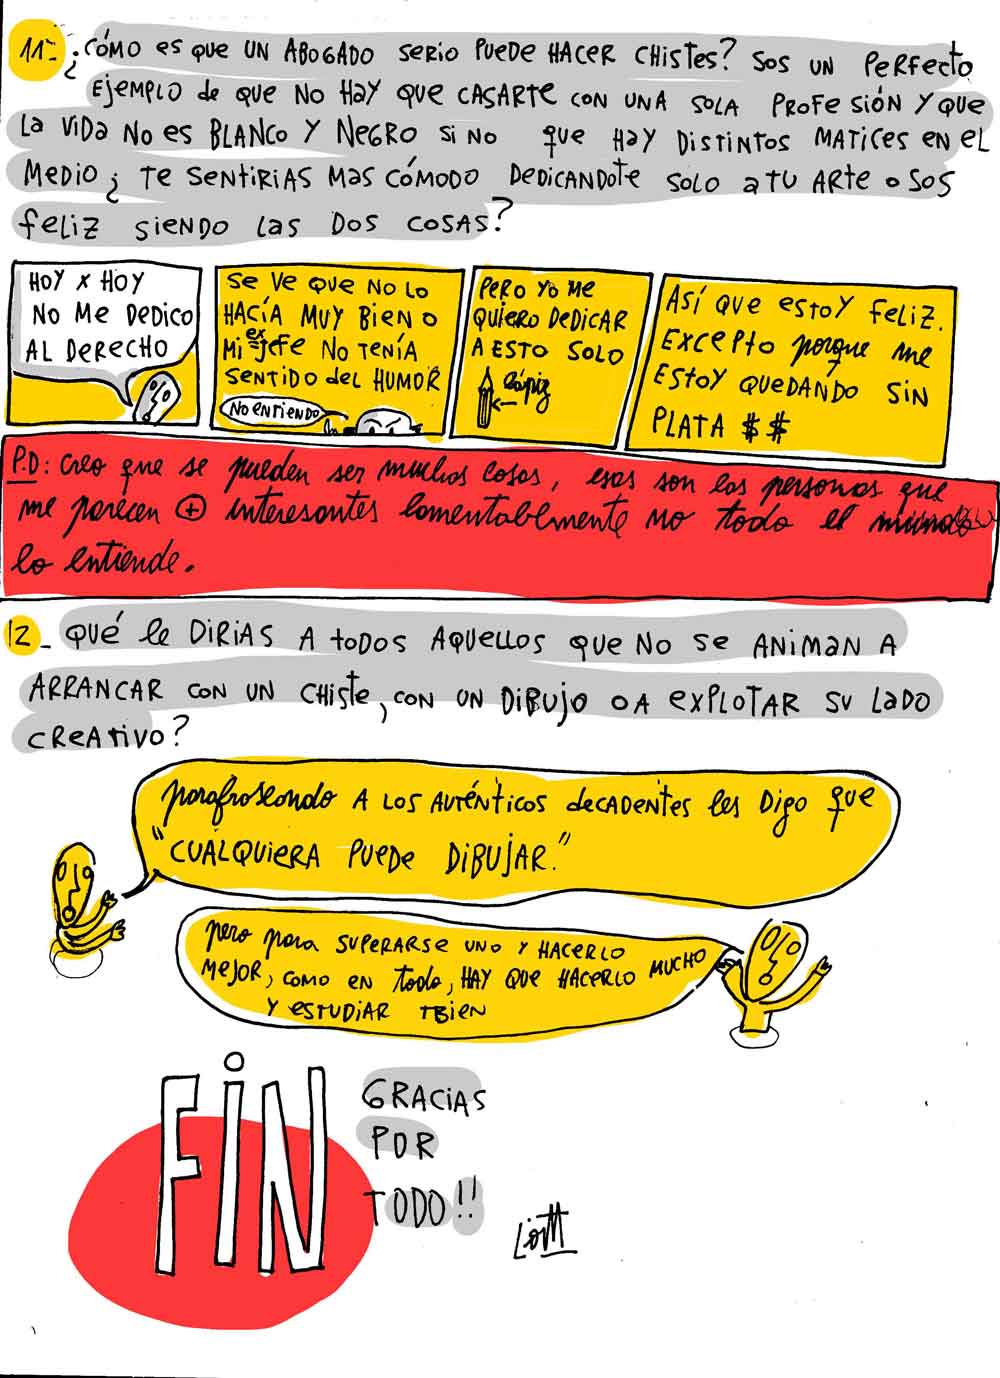 11- ¿CÓMO ES QUE UN ABOGADO SERIO PUEDE HACER CHISTES? SOS UN PERFECTO
EJEMPLO de QUE NO HAY QUE CASARTE CON UNA SOLA PROFESIÓN Y QUE
LA VIDA NO ES BLANCO Y NEGRO SI NO que HAY DISTINTOS MATICES EN EL
MEDIO ¿ TE SENTIRIAS MAS CÓMODO DEDICANDOTE SOLO a TU ARTE o SOS
feliz SIENDO LAS DOS COSAS?
HOY X HOY
NO ME DEDICO
AL DERECHO
SE VE QUE NO LO
HACÍA MUY BIEN O
MI ex JEFE NO TENÍA
SENTIDO del HUMOR
NO ENTIENDO
PERO YO ME
QUIERO DEDICAR
A ESTO SOLO
lápiz
ASÍ QUE ESTOY FELIZ.
EXCEPTO porque me
ESTOY QUEDANDO SIN
PLATA $ $
P.D: Creo que se pueden ser muchas cosas, esas son las personas que
me parecen + interesantes lamentablemente no todo el mundo
lo entiende.
12_ QUÉ le DIRIAS A todos AQUELLOS QUE NO SE ANIMAN A
ARRANCAR CON UN CHISTE, CON UN DIBUJO O A EXPLOTAR SU LADO
CREATIVO?
parafraseando A LOS AUTÉNTICOS decadentes les Digo que
"CUALQUIERA PUEDE DIBUJAR."
pero para SUPERARSE UNO Y HACERLO
MEJOR, COMO EN todo, HAY QUE HACERLO MUCHO
Y ESTUDIAR TBIEN
FIN
GRACIAS
POR
TODO!!